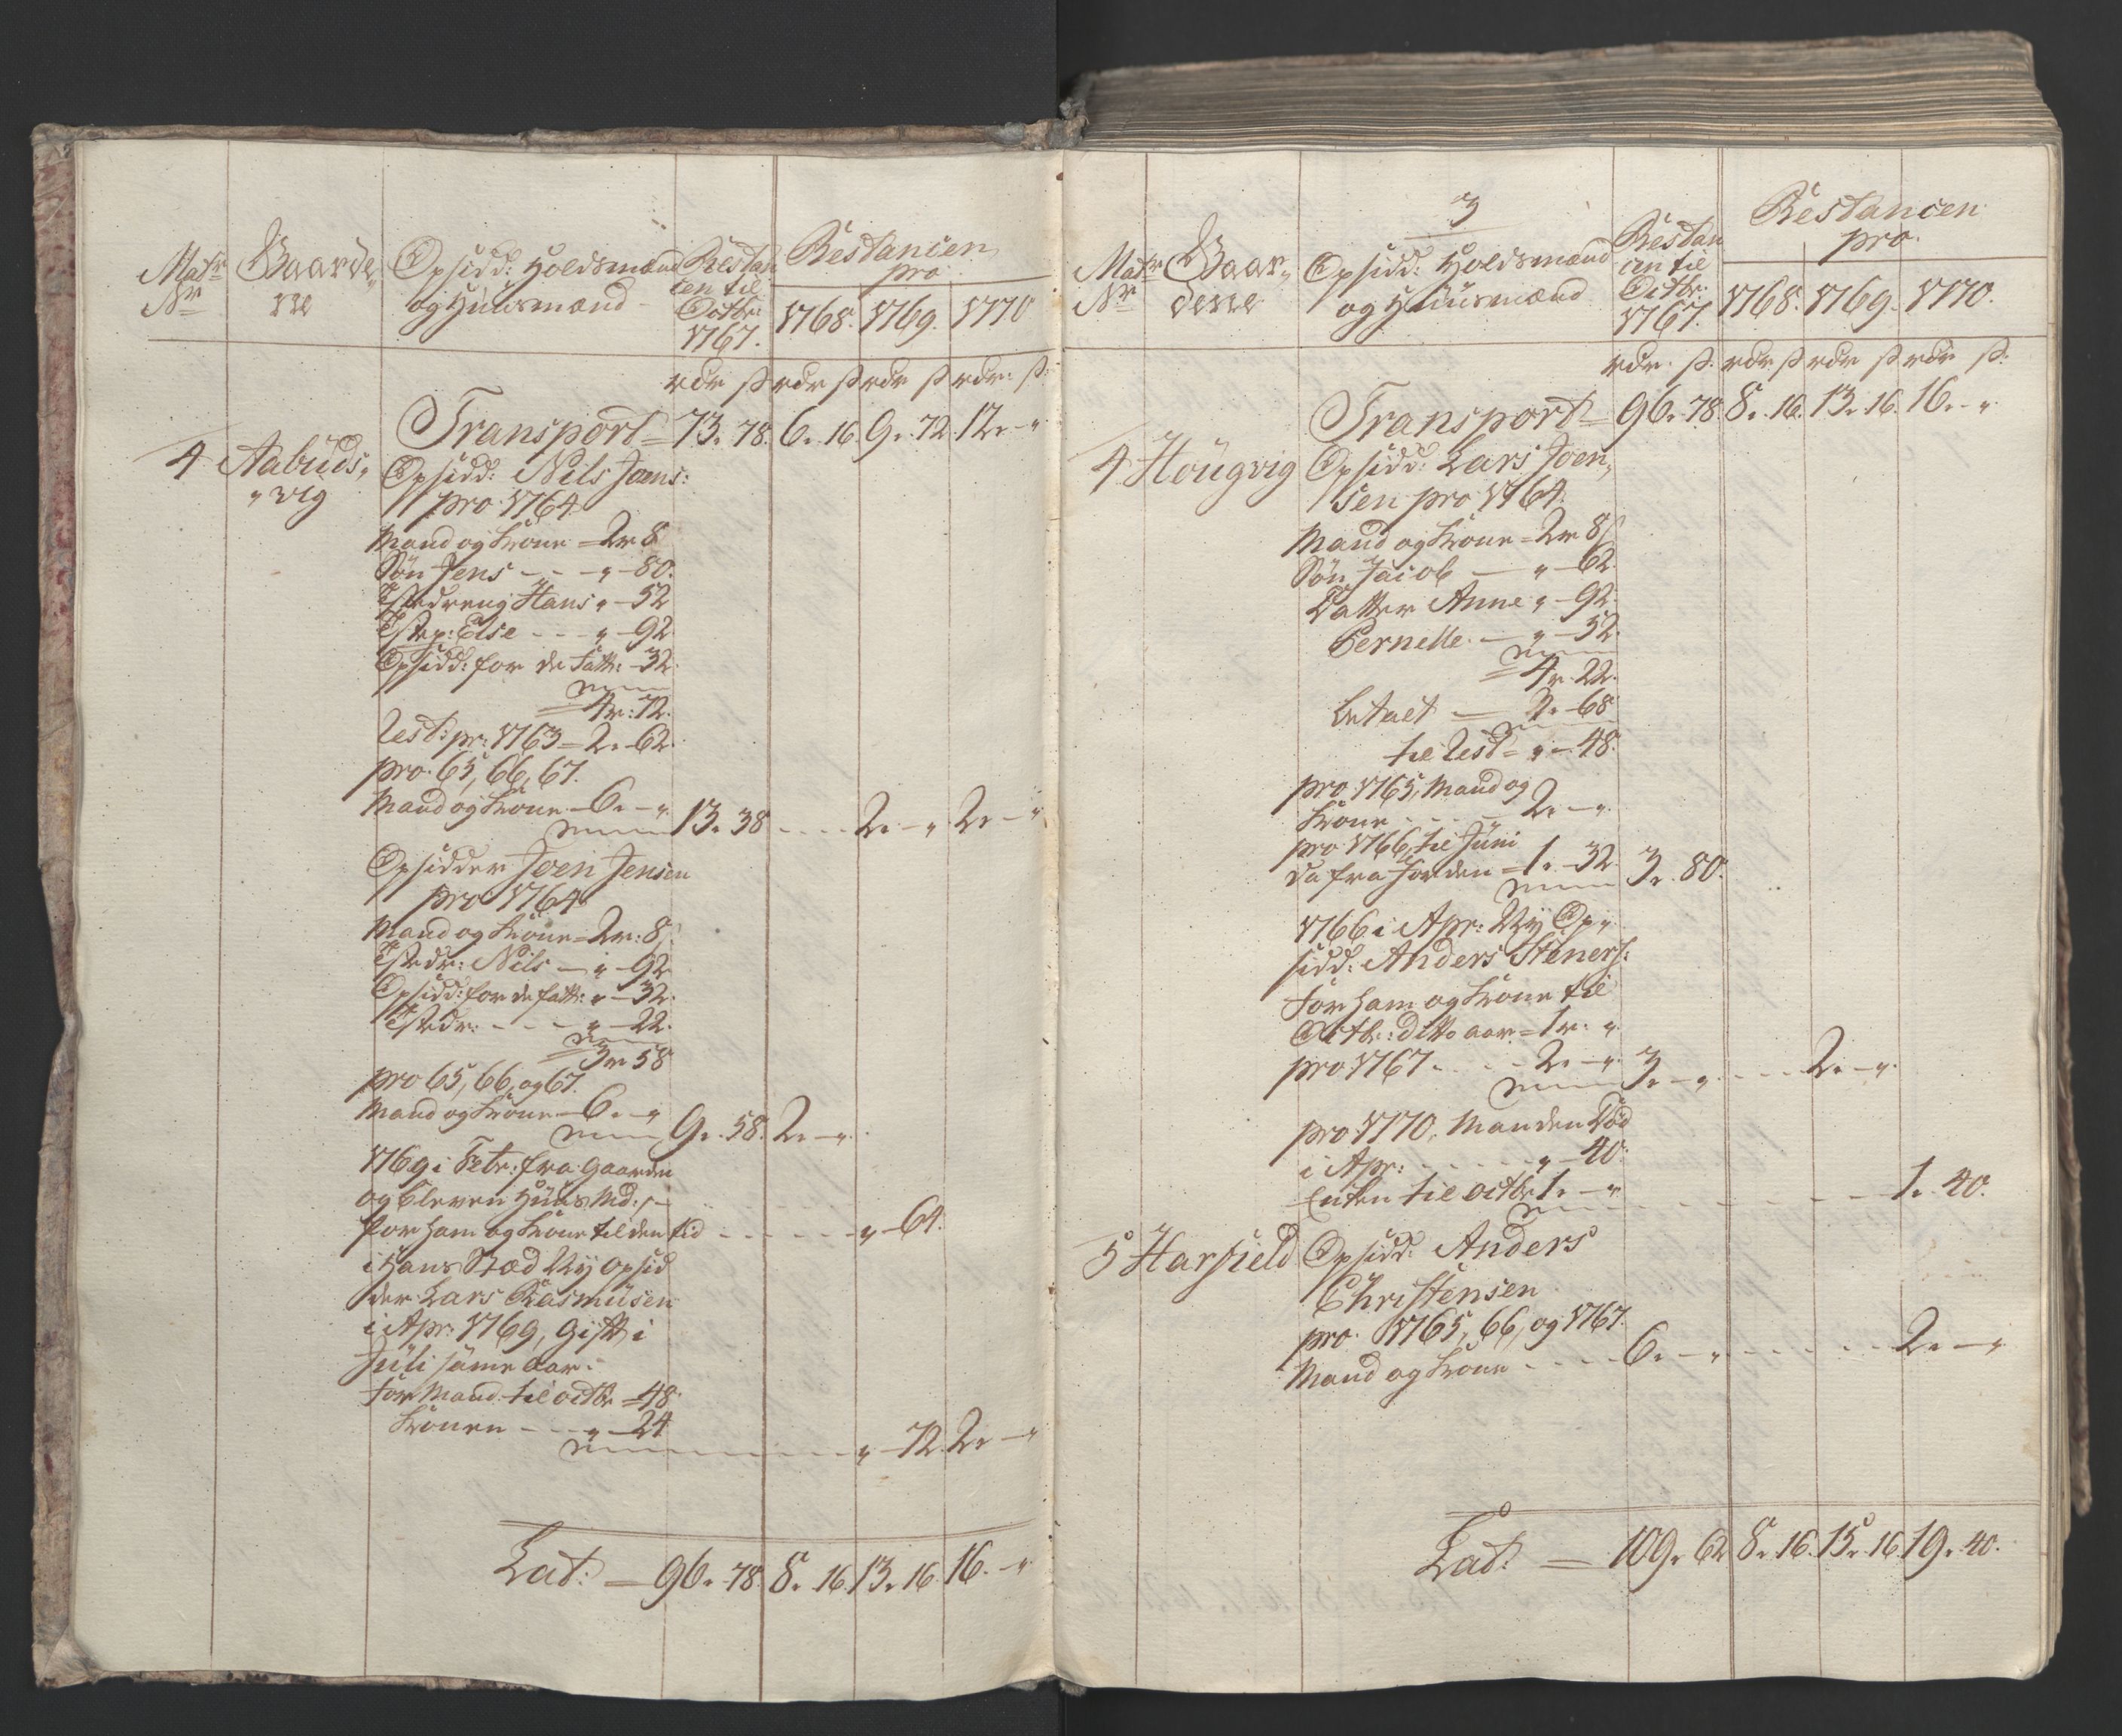 Matr Nr Gaarde„ne Opsidd: Holdsmænd og Huusmænd Restan cen til Octbr: 1767. Restancen pro
1768. 1769. 1770
rdr ß rdr ß rdr ß rdr: ß:
Transport = 73. 78. 6. 16. 9. 72. 12. - „
4 Aabuds„ Opsidd: Nils Joens:
„vig pro 1764
Mand og Kone = 2r 8
Søn Jens - - - „ - 80.
Tstedreng Hans „ - 52
Tstep: Else - - - „ - 92
Opsidd: for de fatt: - 32.
= 4r: 72.
Rest: pr: 1763 = 2. - 62.
pro. 65, 66, 67.
Mand og Kone - 6. - „ 13. 38 - - - - 2. - „ 2. - „
Opsidder Joen Jensen
pro 1764
Mand og Kone = 2r: 8
Tstedr: Nils - „ - 92
Opsidd: for de fatt: „ - 32.
Tstedr: - - - „ - 22.
= 3r 58
pro 65, 66, og 67.
Mand og Kone - 6. - „ 9. 58. 2. - „
1769 i Febr: fra Gaarden
og bleven Huus Md: -
for ham og Kone til den tid - - - - - - „ - 64.
i Hans Stæd Ny Opsid
der Lars Rasmusen
i Apr: 1769, Gift i
Juli same aar.
for Mand til Octbr = 48
Konen - - „ - 24
„ - 72. 2. - „
Lat: = 96. 78 8. 16 13. 16 16. - „
3
Matr Nr Gaar„ derne Opsidd: Holdsmænd og Huusmænd Restan cen til Octbr: 1767. Restancen pro.
1768. 1769. 1770.
rdr. ß: rdr ß rdr ß rdr ß:
Transport = 96. 78. 8. 16. 13. 16. 16. - „
4 Hougvig Opsidd: Lars Joen„
sen pro 1764.
Mand og Kone = 2r 8
Søn Jacob - „ - 62.
Datter Anne „ - 92.
Pernelle. - „ - 52.
= 4r. 22.
betalt - 3. - 68
til Rest = „ - 48.
pro 1765, Mand og
Kone - - - - 2. - „
pro 1766, til Juni
da fra Jorden = 1. - 32. 3. 80.
1766 i Apr: Ny Op„
sidd: Anders Steners:
for ham og Kone til
Octbr: ditto aar = 1r: „
pro 1767 - - - - 2. - „ 3. - „ - - - - 2. - „
pro 1770, Manden Død
i Apr: - - - - - „ - 40.
Enken til Octbr 1. - „ - - - - - - 1. 40.
5 Harfield Opsidd: Anders
Christensen
pro. 1765, 66, og 1767.
Mand og Kone - - - - 6. - „ - - - - - - 2. - „
Lat: = 109. 62 8. 16. 15. 16 19. 40.